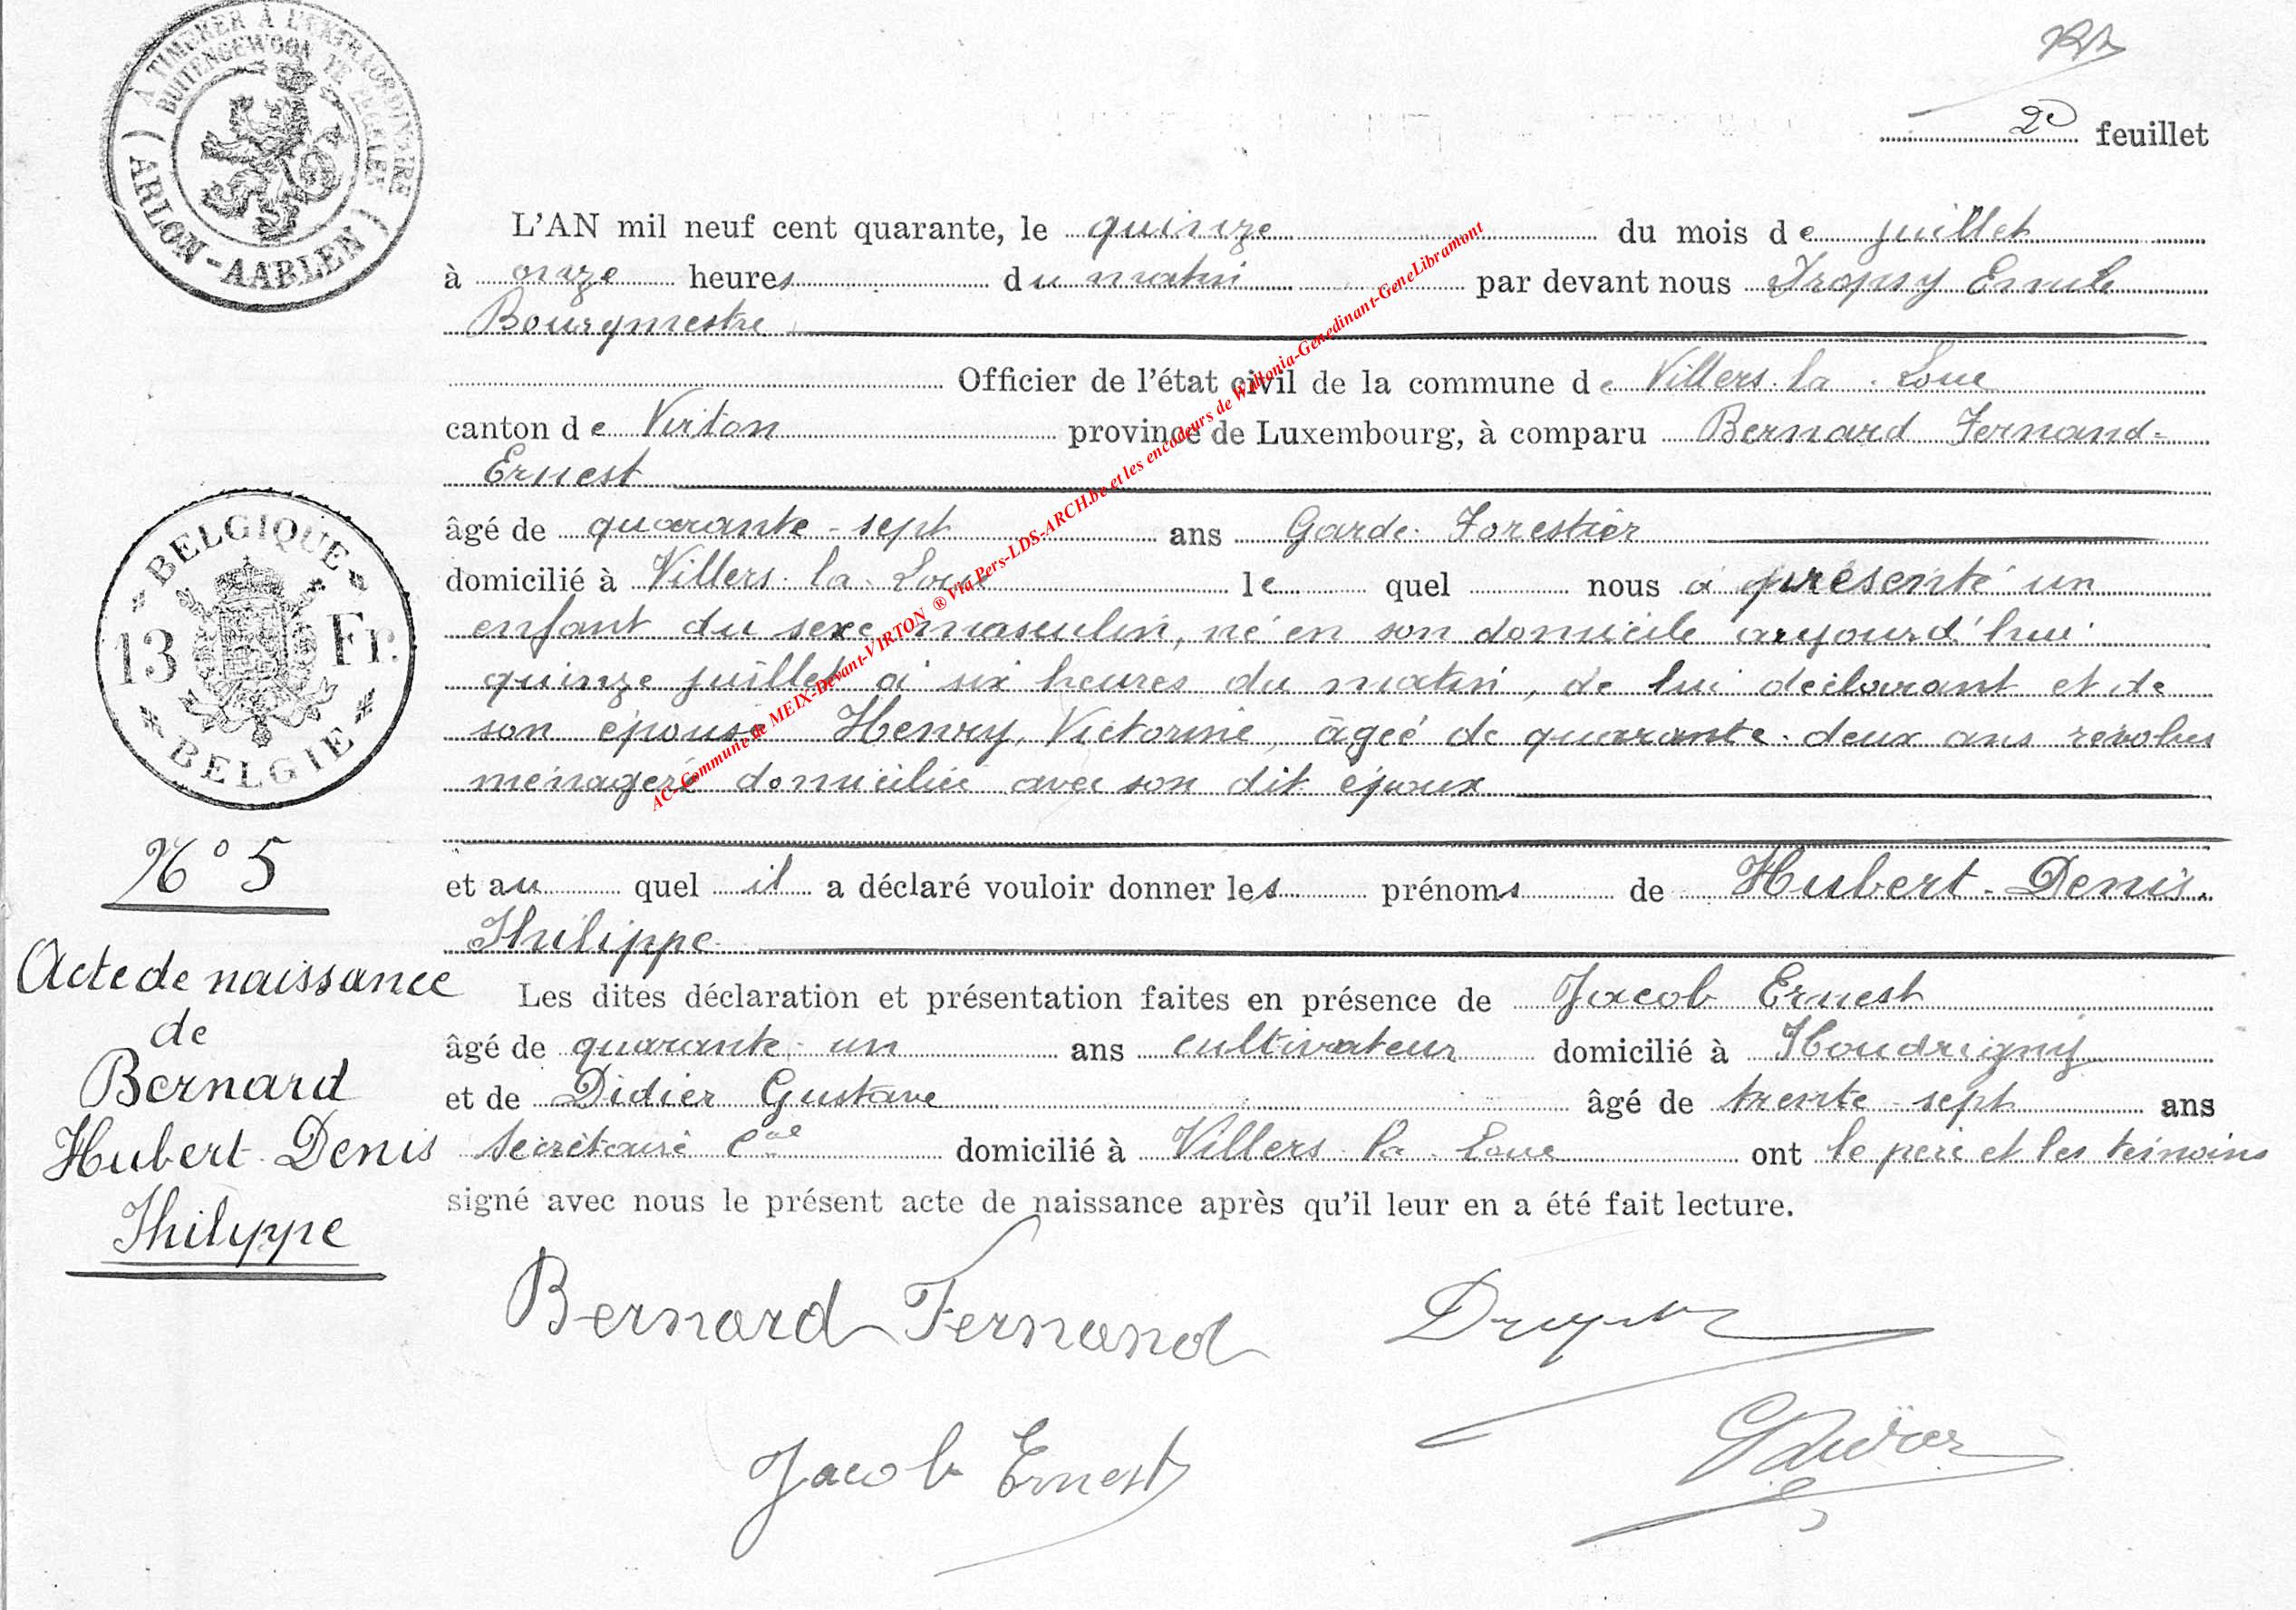 À TIMBRER À L'EXTRAORDINAIRE
BUITENGEWOON TE ZEGELEN
ARLON - AARLEN
2e feuillet
L'AN mil neuf cent quarante, le quinze du mois de juillet
à onze heures du matin par devant nous Tropsy Emile
Bourgmestre
Officier de l'état civil de la commune de Villers-la-Loue
canton de Virton province de Luxembourg, à comparu Bernard Fernand-
Ernest
BELGIQUE
13 Fr.
BELGIE
âgé de quarante-sept ans Garde-Forestier
domicilié à Villers-la-Loue lequel nous a présenté un
enfant du sexe masculin, né en son domicile aujourd'hui
quinze juillet à six heures du matin, de lui déclarant et de
son épouse Henry, Victorine, âgée de quarante-deux ans révolus
ménagère domiciliée avec son dit époux
N° 5
et auquel il a déclaré vouloir donner les prénoms de Hubert-Denis-
Philippe
Acte de naissance
de
Bernard
Hubert-Denis
Philippe
Les dites déclaration et présentation faites en présence de Jacob Ernest
âgé de quarante-un ans cultivateur domicilié à Houdrigny
et de Didier Gustave âgé de trente-sept ans
secrétaire cal domicilié à Villers-la-Loue ont le père et les témoins
signé avec nous le présent acte de naissance après qu'il leur en a été fait lecture.
Bernard Fernand
Jacob Ernest
GDidier
AC-Commune de MEIX-Devant-VIRTON ® Via Pers-LDS-ARCH.be et les encodeurs de Wallonia-Genedinant-GeneLibramont